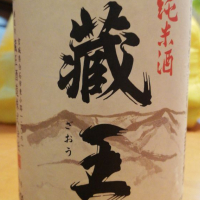 純米酒
蔵王
ざおう